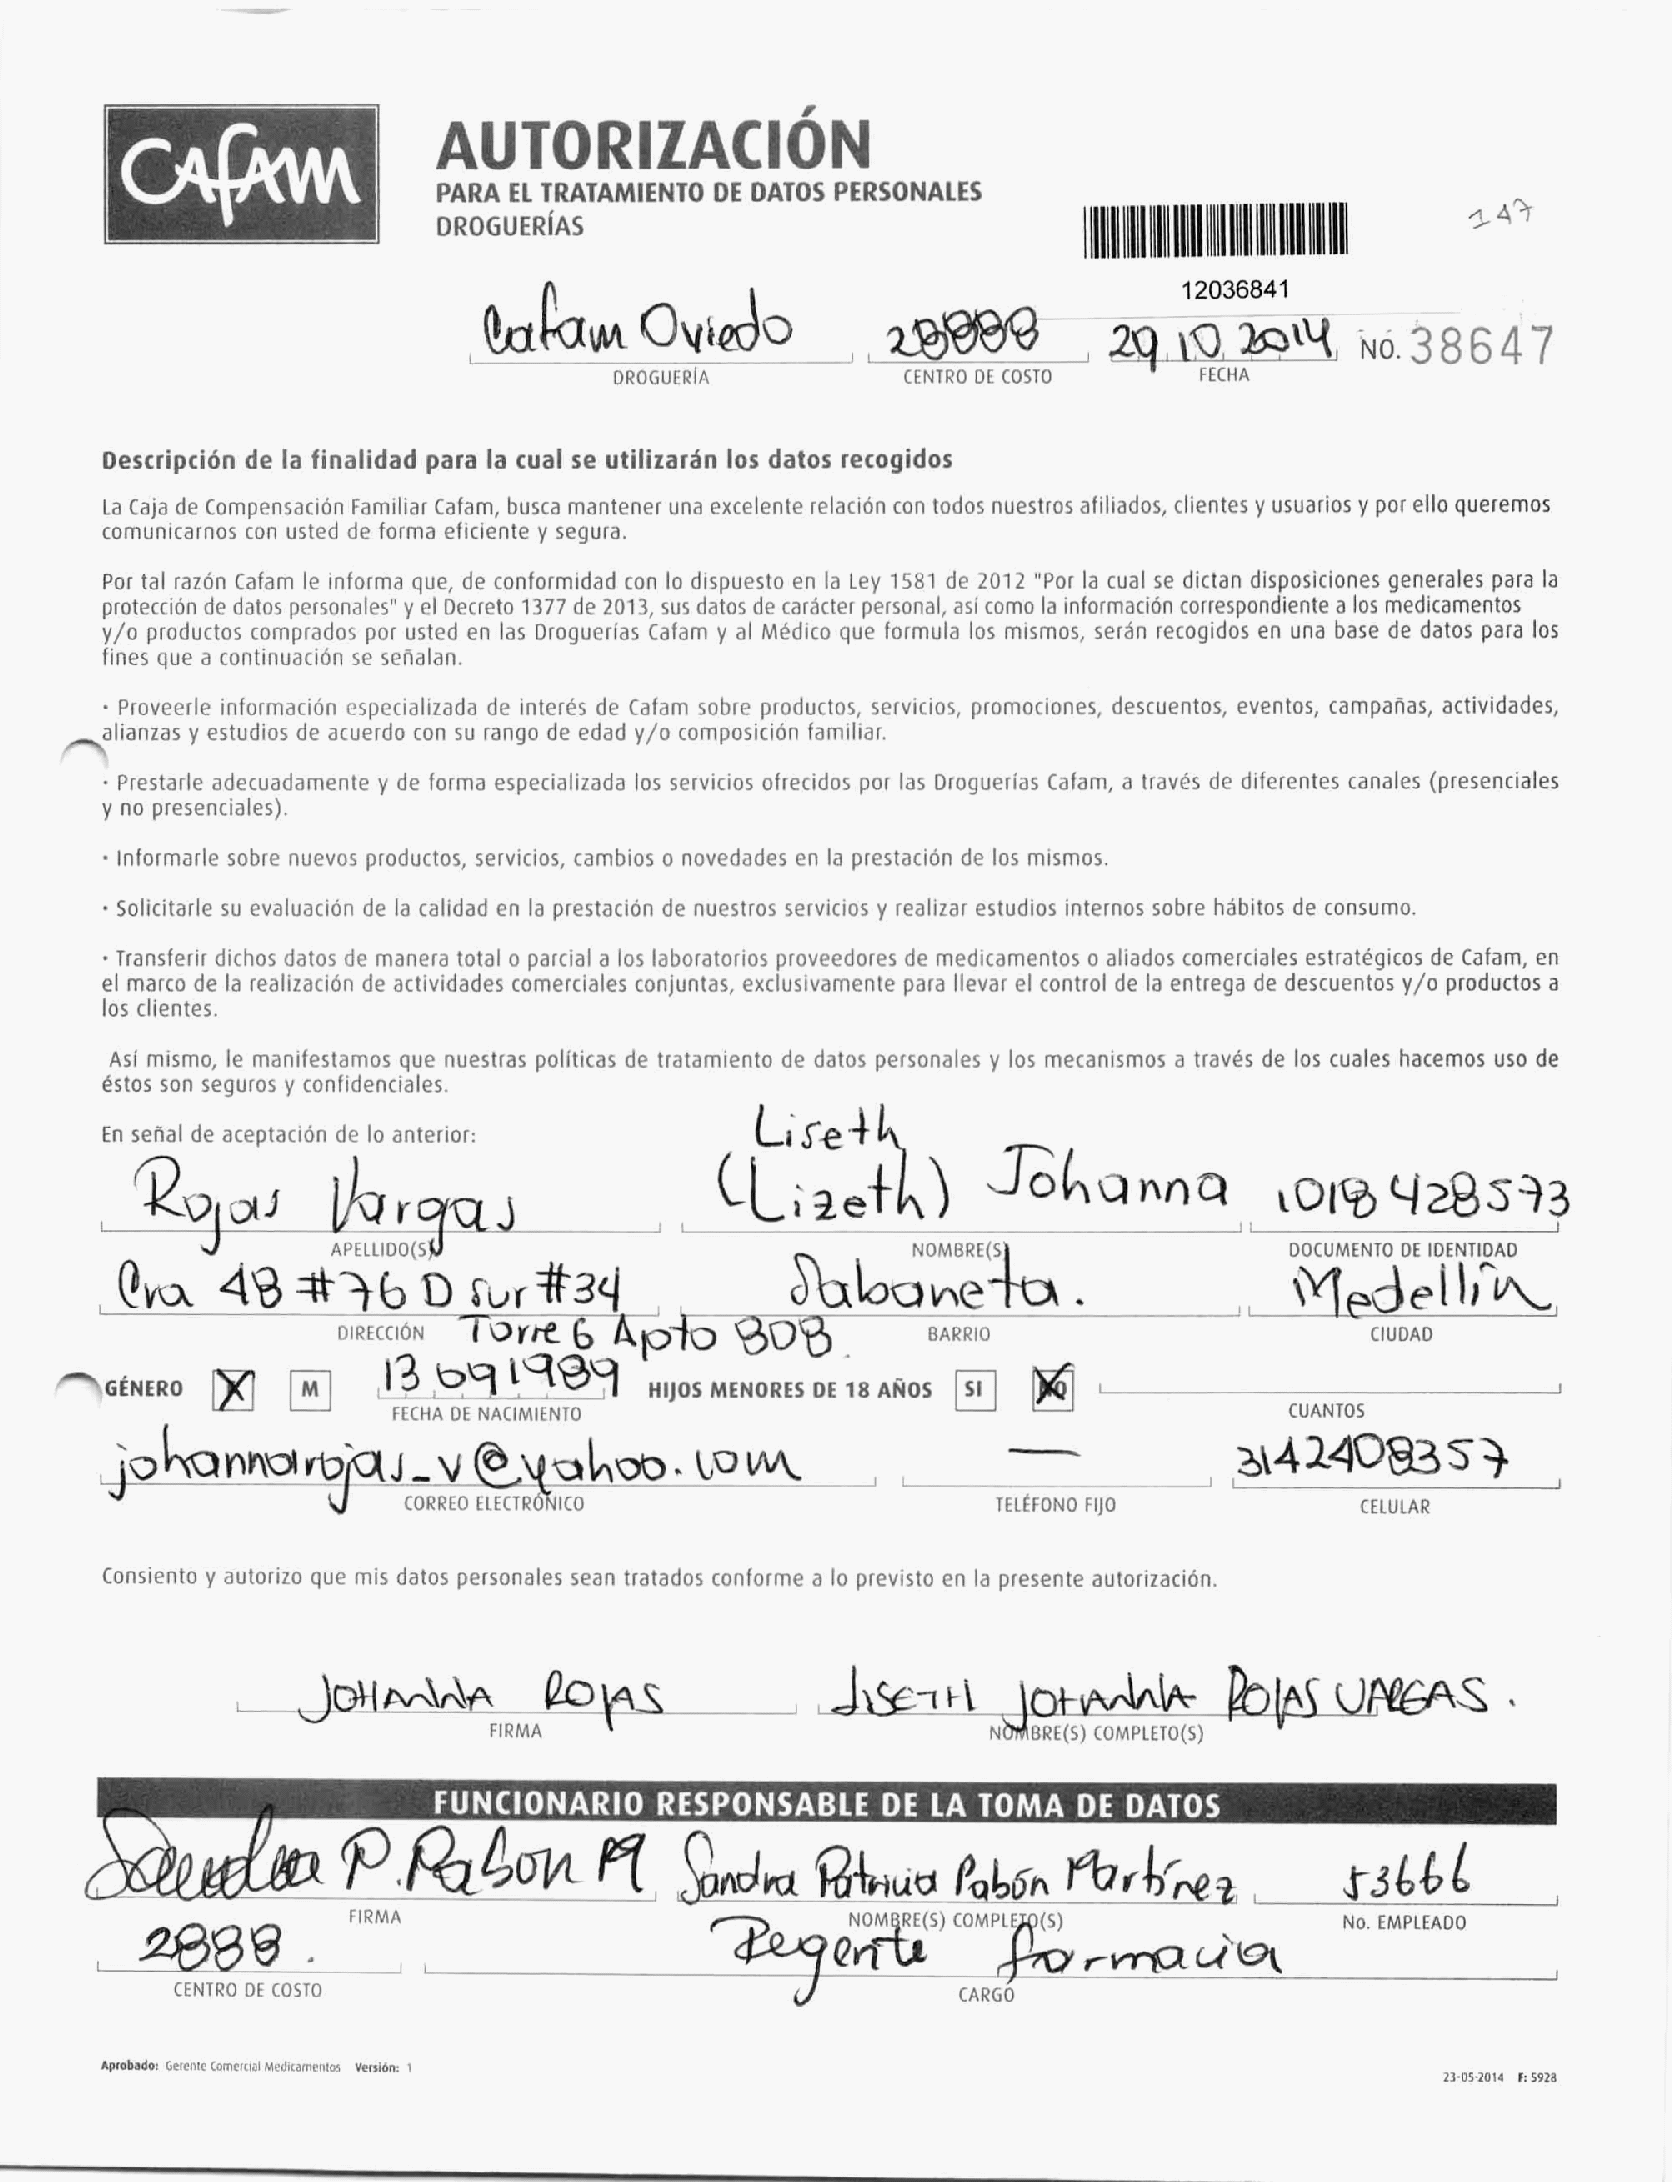 Cafam
AUTORIZACIÓN
PARA EL TRATAMIENTO DE DATOS PERSONALES
DROGUERÍAS
147
12036841
Cafam Oviedo 29 10 2014 NO. 38647
DROGUERÍA CENTRO DE COSTO FECHA
Descripción de la finalidad para la cual se utilizarán los datos recogidos
La Caja de Compensación Familiar Cafam, busca mantener una excelente relación con todos nuestros afiliados, clientes y usuarios y por ello queremos
comunicarnos con usted de forma eficiente y segura.
Por tal razón Cafam le informa que, de conformidad con lo dispuesto en la Ley 1581 de 2012 "Por la cual se dictan disposiciones generales para la
protección de datos personales" y el Decreto 1377 de 2013, sus datos de carácter personal, así como la información correspondiente a los medicamentos
y/o productos comprados por usted en las Droguerías Cafam y al Médico que formula los mismos, serán recogidos en una base de datos para los
fines que a continuación se señalan.
· Proveerle información especializada de interés de Cafam sobre productos, servicios, promociones, descuentos, eventos, campañas, actividades,
alianzas y estudios de acuerdo con su rango de edad y/o composición familiar.
· Prestarle adecuadamente y de forma especializada los servicios ofrecidos por las Droguerías Cafam, a través de diferentes canales (presenciales
y no presenciales).
· Informarle sobre nuevos productos, servicios, cambios o novedades en la prestación de los mismos.
· Solicitarle su evaluación de la calidad en la prestación de nuestros servicios y realizar estudios internos sobre hábitos de consumo.
· Transferir dichos datos de manera total o parcial a los laboratorios proveedores de medicamentos o aliados comerciales estratégicos de Cafam, en
el marco de la realización de actividades comerciales conjuntas, exclusivamente para llevar el control de la entrega de descuentos y/o productos a
los clientes.
Así mismo, le manifestamos que nuestras políticas de tratamiento de datos personales y los mecanismos a través de los cuales hacemos uso de
éstos son seguros y confidenciales.
En señal de aceptación de lo anterior:
Liseth
Rojas Vargas (Lizeth) Johanna 1018428573
APELLIDO(S) NOMBRE(S) DOCUMENTO DE IDENTIDAD
Cra 48 #76 D sur #34 Sabaneta. Medellín
DIRECCIÓN Torre 6 Apto 808. BARRIO CIUDAD
GÉNERO X M 13 09 1989 HIJOS MENORES DE 18 AÑOS SI NO
FECHA DE NACIMIENTO CUANTOS
johannarojas_v@yahoo.com — 3142408357
CORREO ELECTRÓNICO TELÉFONO FIJO CELULAR
Consiento y autorizo que mis datos personales sean tratados conforme a lo previsto en la presente autorización.
JOHANNA ROJAS LISETH JOHANNA ROJAS VARGAS.
FIRMA NOMBRE(S) COMPLETO(S)
FUNCIONARIO RESPONSABLE DE LA TOMA DE DATOS
Sandra P. Pabon M Sandra Patricia Pabón Martínez 53666
FIRMA NOMBRE(S) COMPLETO(S) No. EMPLEADO
2888. Regente farmacia
CENTRO DE COSTO CARGO
Aprobado: Gerente Comercial Medicamentos Versión: 1
23-05-2014 F: 5928